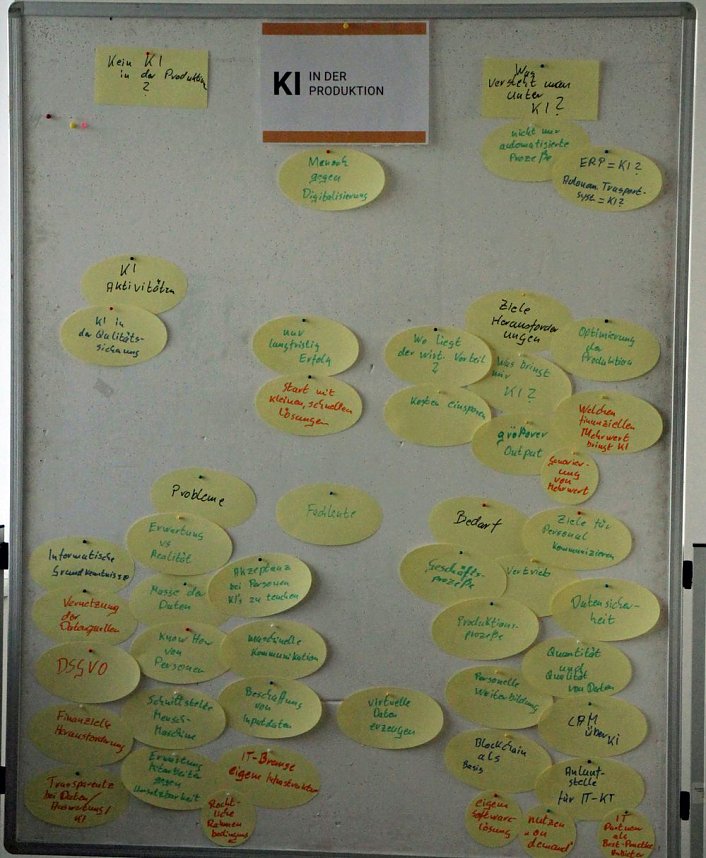 Kein KI
in der Produktion
?
KI IN DER
PRODUKTION
Was
versteht man
unter
KI?
nicht nur
automatisierte
Prozeße
ERP = KI?
Autonom. Transport-
syst. = KI?
Mensch
gegen
Digitalisierung
KI
Aktivitäten
KI in
der Qualitäts-
sicherung
nur
langfristig
Erfolg
Start mit
kleinen, schnellen
Lösungen
Ziele
Herausforder
ungen
Wo liegt
der wirt. Vorteil
?
Was bringt
mir
KI?
Optimierung
der
Produktion
Kosten einsparen
größerer
Output
Welchen
finanziellen
Mehrwert
bringt KI
Generier-
ung
von
Mehrwert
Probleme
Fachleute
Erwartung
vs
Realität
Informatische
Grundkenntnisse
Masse der
Daten
Akzeptanz
bei Personen
KI's zu
Vernetzung
der
Datenquellen
Know How
von
Personen
maschinelle
Kommunikation
DSGVO
Schnittstelle
Mensch-
Maschine
Beschaffung
von
Inputdaten
virtuelle
Daten
erzeugen
Finanzielle
Herausforderung
Erwartung
Mitarbeiter
gegen
Umsetzbarkeit
IT-Branche
eigene Infrastruktur
Transparenz
bei Daten/
Auswertung/
KI
Recht-
liche
Rahmen
beding
Bedarf
Ziele für
Personal
kommunizieren
Geschäfts-
prozeße
Vertrieb
Datensicher-
heit
Produktions-
prozeße
Quantität
und
Qualität
von Daten
Personelle
Weiterbildung
über KI
Blockchain
als
Basis
Anlauf-
stelle
für IT-KI
eigene
Software-
lösung
nutzen
"on
demand"
IT
Partner
als
Best-Practice
Anbieter